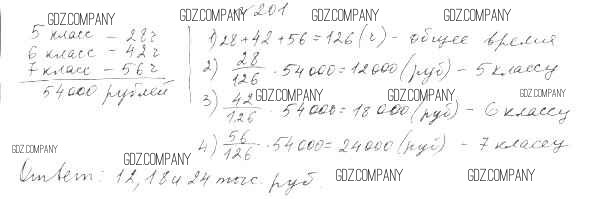 № 201
5 класс – 28 ч
6 класс – 42 ч
7 класс – 56 ч
54000 рублей
1) 28 + 42 + 56 = 126 (ч) – общее время
2) 28/126 · 54000 = 12000 (руб) – 5 классу
3) 42/126 · 54000 = 18000 (руб) – 6 классу
4) 56/126 · 54000 = 24000 (руб) – 7 классу
Ответ: 12, 18 и 24 тыс. руб.
GDZ.COMPANY
GDZ.COMPANY
GDZ.COMPANY
GDZ.COMPANY
GDZ.COMPANY
GDZ.COMPANY
GDZ.COMPANY
GDZ.COMPANY
GDZ.COMPANY
GDZ.COMPANY
GDZ.COMPANY
GDZ.COMPANY